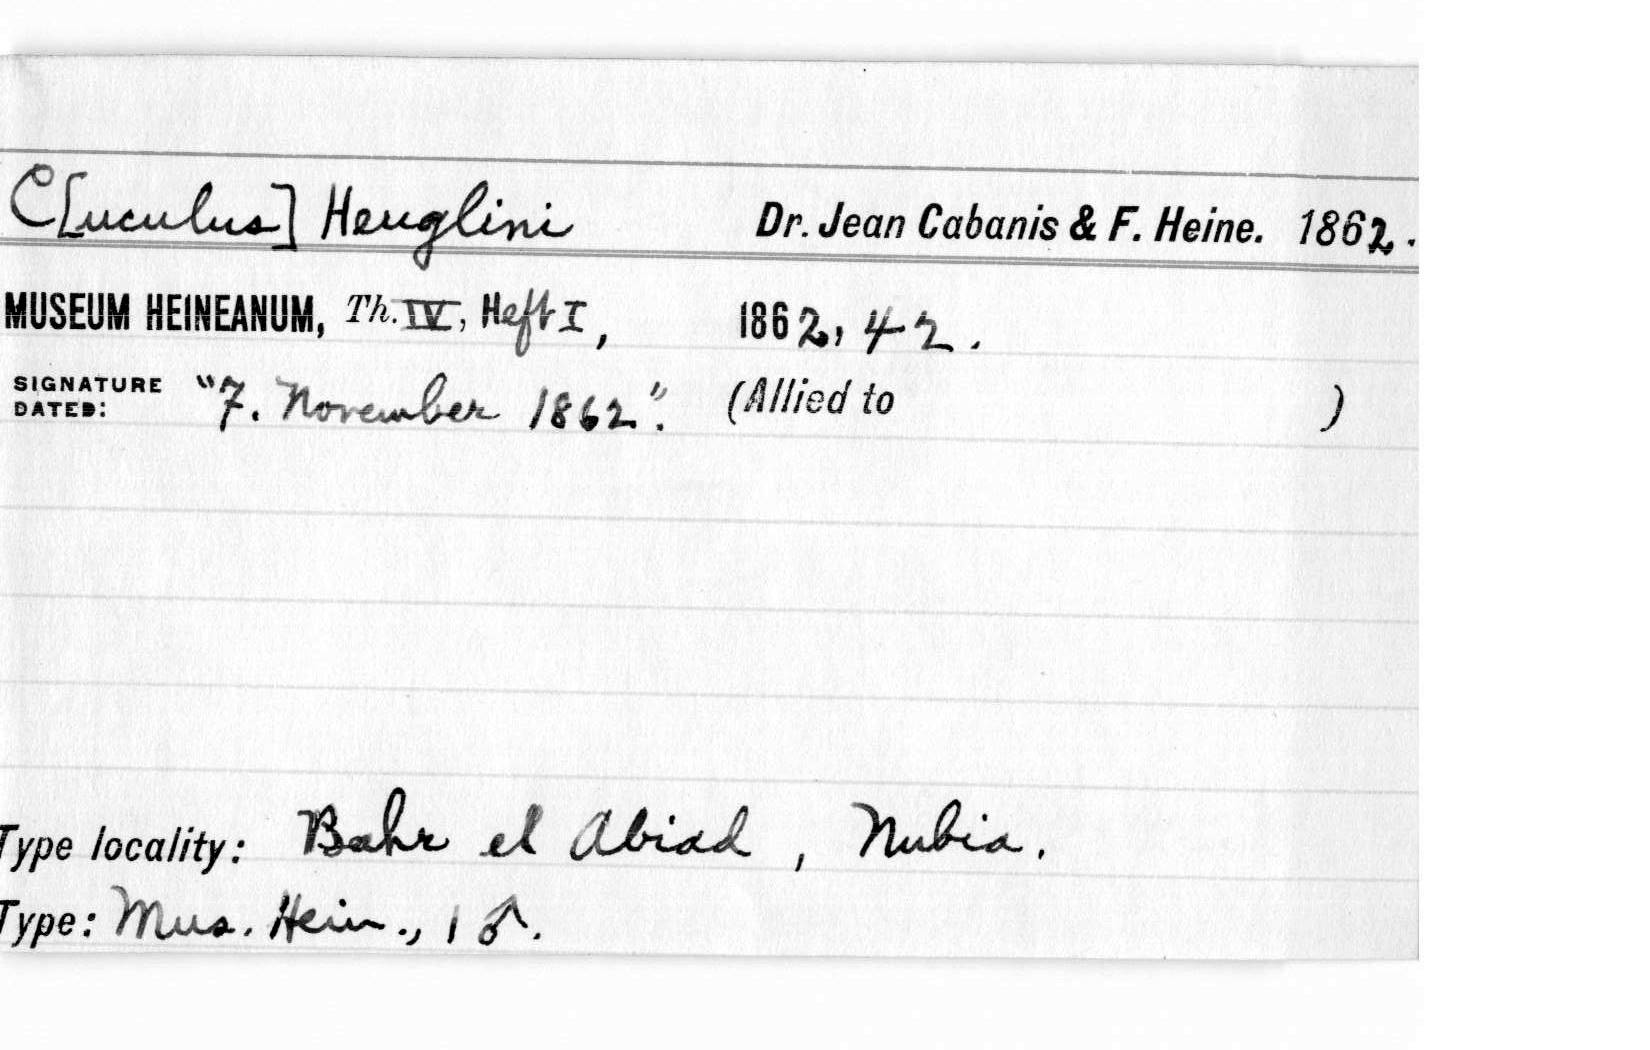 C[uculus] Heuglini Dr. Jean Cabanis & F. Heine. 1862.
MUSEUM HEINEANUM, Th. IV, Heft I, 1862, 42.
SIGNATURE DATED: "7. November 1862". (Allied to )
Type locality: Bahr el Abiad, Nubia.
Type: Mus. Hein., 1 ♂.